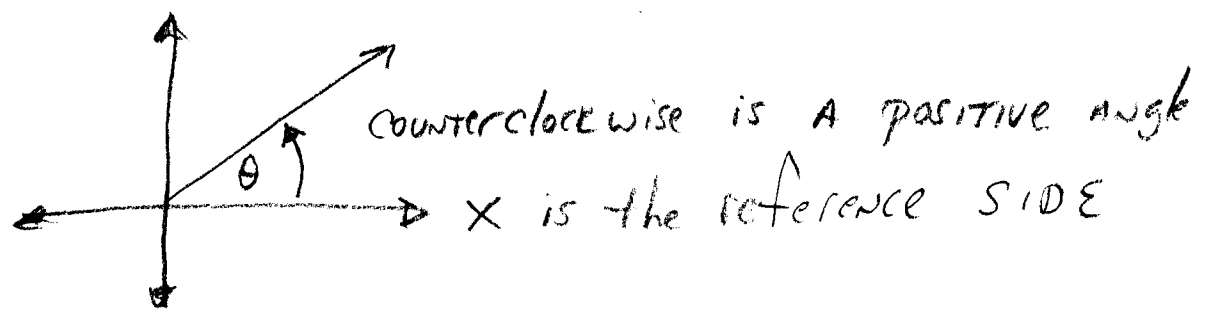 counterclockwise is A positive Angle
θ
X is the reference SIDE